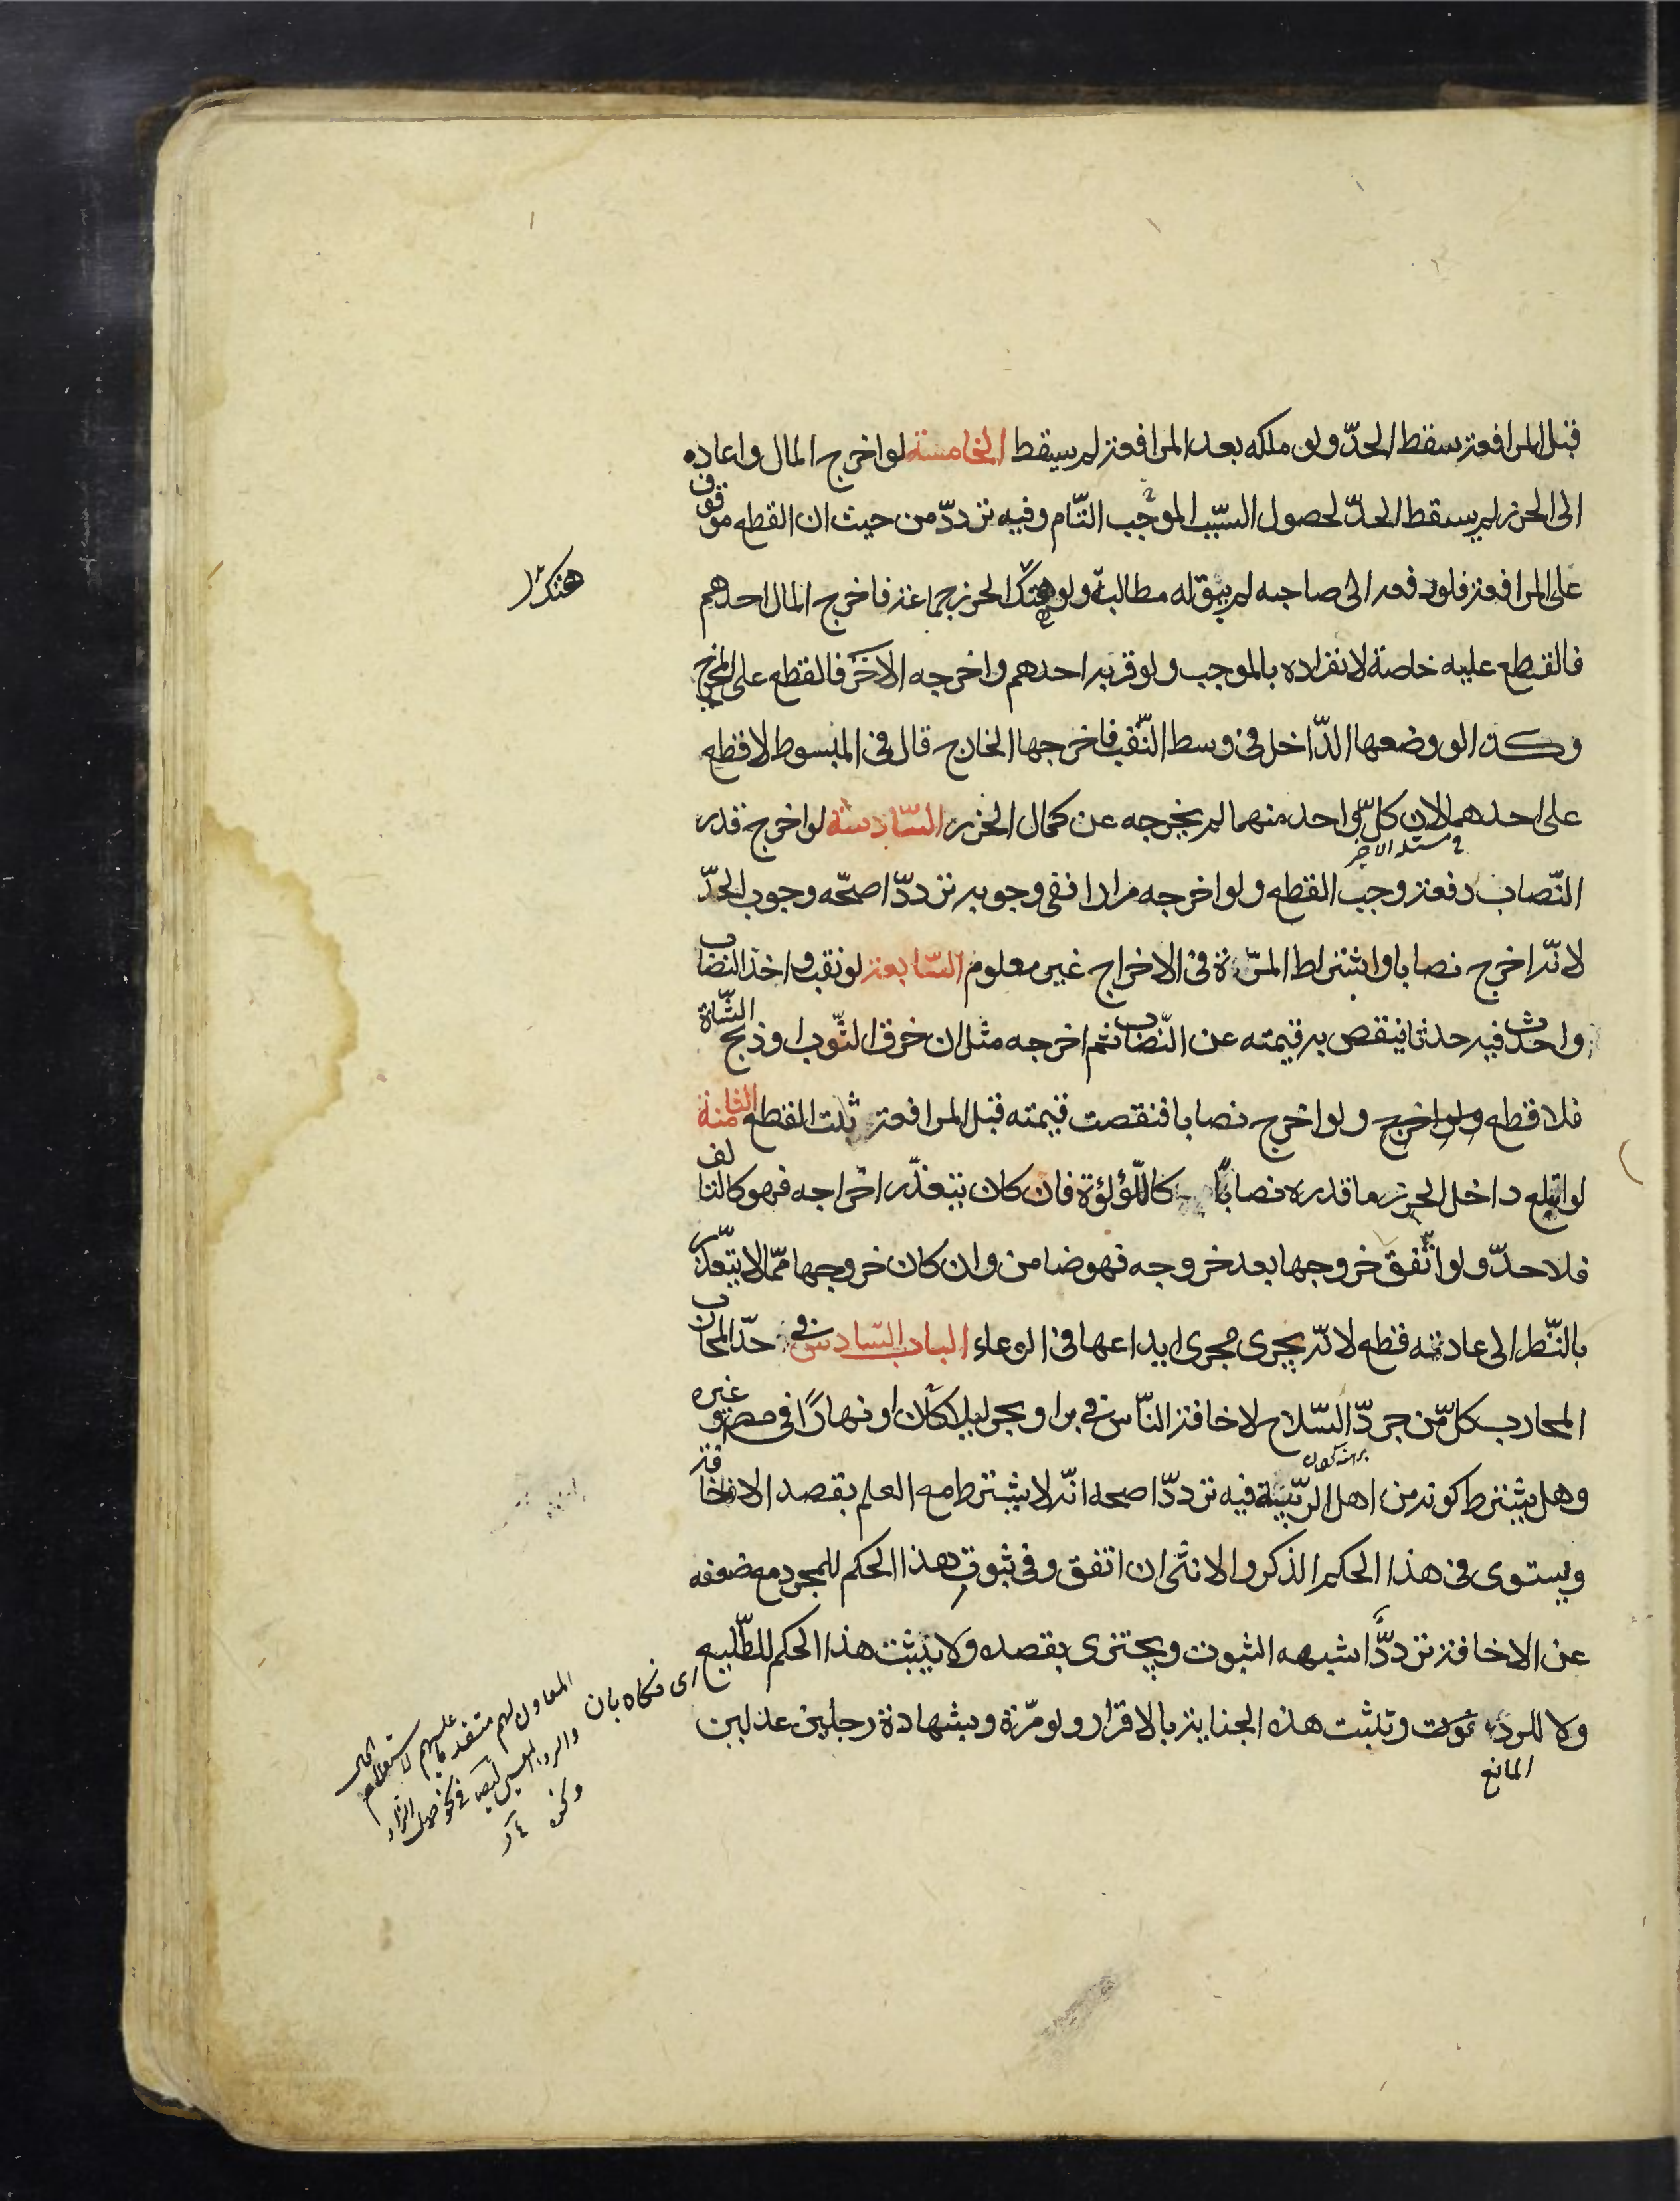 قبل المرافعة سقط الحدّ ولو ملكه بعد المرافعة لم يسقط الخامسة لو اخرج المال واعاده
الى الحرز لم يسقط الحدّ لحصول السبب الموجب التّام وفيه تردّد من حيث ان القطع موقوف
على المرافعة فلو دفعه الى صاحبه لم يبق له مطالبة ولو هتك الحرز جماعة فاخرج المال احدهم
هتك
فالقطع عليه خاصة لانفراده بالموجب ولو قربه احدهم واخرجه الاخر فالقطع على المخرج
وكذا لو وضعها الدّاخل فى وسط النّقب فاخرجها الخارج قال فى المبسوط لا قطع
على احدهما لان كلّ واحد منهما لم يخرجه عن كمال الحرز السّادسة لو اخرج قدر
النّصاب دفعة وجب القطع ولو اخرجه مرارا ففى وجوبه تردّد اصحّه وجوب الحدّ
لانّه اخرج نصابا واشتراط المرّة فى الاخراج غير معلوم السّابعة لو نقب واخذ النصاب
واحدث فيه حدثا ينقص به قيمته عن النّصاب ثم اخرجه مثل ان خرق الثّوب او ذبح الشّاة
فلا قطع ولو اخرج ولو اخرج نصابا فنقصت قيمته قبل المرافعة ثبت القطع الثامنة
لو ابتلع داخل الحرز ما قدره نصابا كاللّؤلؤة فان كان يتعذّر اخراجه فهو كالتالف
فلا حدّ ولو اتّفق خروجها بعد خروجه فهو ضامن وان كان خروجها ممّا لا يتعذّر
بالنّظر الى عادته قطع لانّه يجرى مجرى ايداعها فى الوعاء الباب السّادس فى حدّ المحارب
المحارب كلّ من جرّد السّلاح لاخافة النّاس فى بر او بحر ليلا كان او نهارًا فى مصر وغيره
وهل يشترط كونه من اهل الرّيبة فيه تردّد اصحه انّه لا يشترط مع العلم بقصد الاخافة
ويستوى فى هذا الحكم الذكر والانثى ان اتفق وفى ثبوت هذا الحكم للمجرد مع ضعفه
عن الاخافة تردّد اشبهه الثبوت ويجتزى بقصده ولا يثبت هذا الحكم للطّليع
ولا للردء وتثبت هذه الجناية بالاقرار ولو مرّة وبشهادة رجلين عدلين
المانع
اى نكاه بان
المعاون لهم